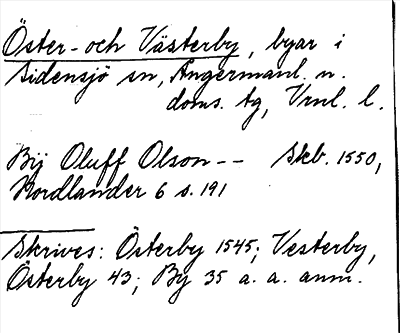 Öster- och Västerby, byar i
Sidensjö sn, Ångermanl. n.
doms. tg, Vrnl. l.
Bij Oluff Olson -- Skb. 1550,
Nordlander 6 s. 191
Skrives: Österby 1545; Vesterby,
Österby 43; By 35 a. a. anm.